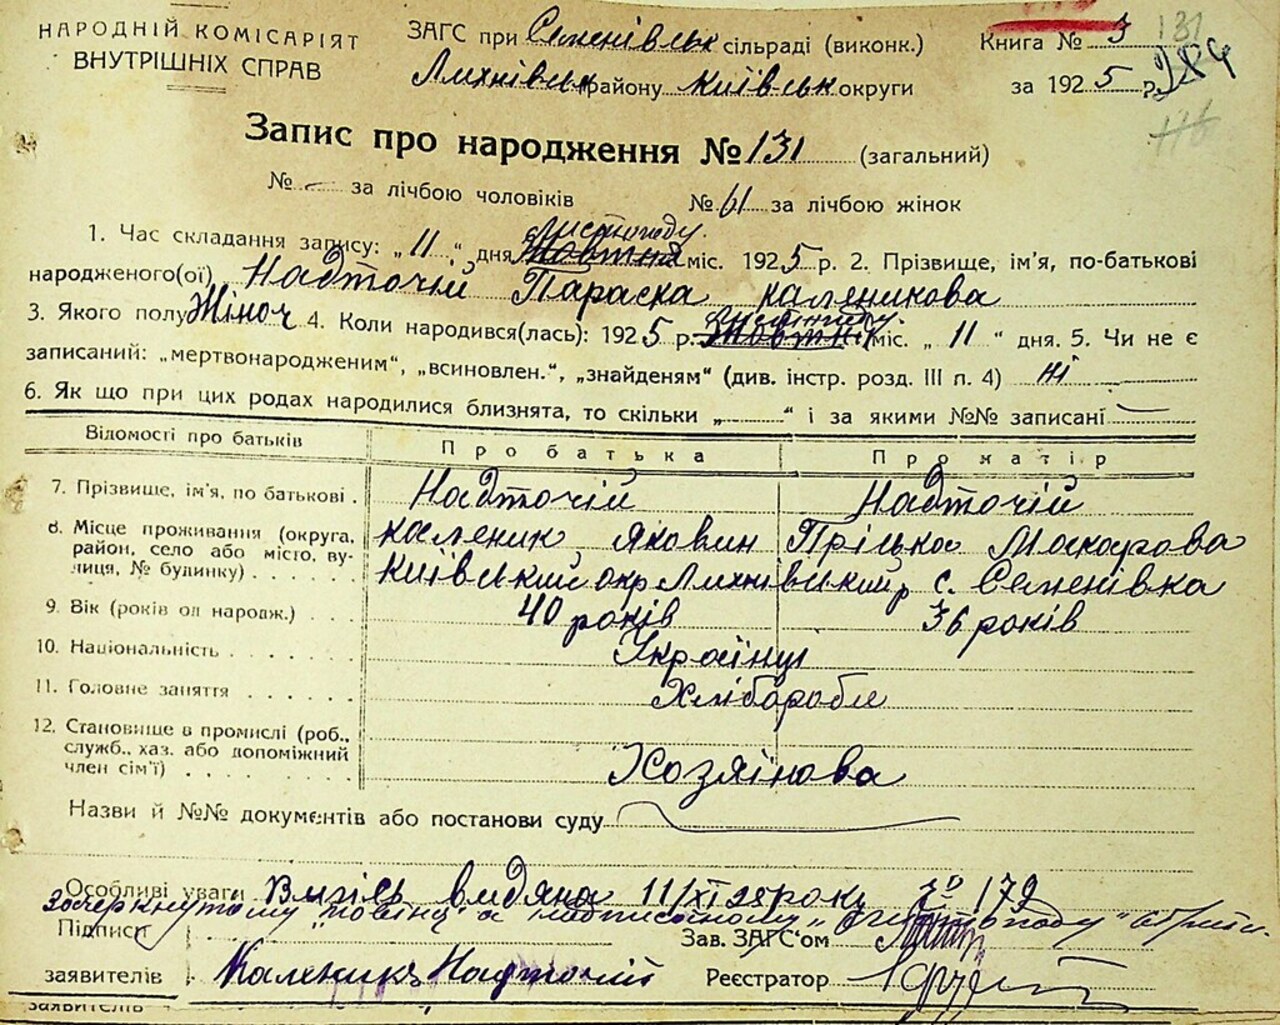 НАРОДНІЙ КОМІСАРІЯТ
ВНУТРІШНІХ СПРАВ
ЗАГС при Семенівськ сільраді (виконк.)
Лихнівськ району Київськ округи
Книга № 3
131
за 1925 р. 284
116
Запис про народження № 131 (загальний)
№ — за лічбою чоловіків № 61 за лічбою жінок
листопаду
1. Час складання запису: „11“ дня Жовтня міс. 1925 р. 2. Прізвище, ім'я, по-батькові
народженого(ої) Надточій Параска Каленикова
листопаду
3. Якого полу Жіноч 4. Коли народився(лась): 1925 р. Жовтня міс. „11“ дня. 5. Чи не є
записаний: „мертвонародженим“, „всиновлен.“, „знайденям“ (див. інстр. розд. III п. 4) ні
6. Як що при цих родах народилися близнята, то скільки „ “ і за якими №№ записані —
Відомості про батьків Про батька Про матір
7. Прізвище, ім'я, по батькові . Надточій Надточій
8. Місце проживання (округа, Каленик Яковин Прісько Макарова
район, село або місто, ву-
лиця, № будинку) . . . . Київський окр Лихнівський р с. Семенівка
9. Вік (років од народж.) . . . 40 років 36 років
10. Національність . . . . . . Українці
11. Головне заняття . . . . . Хлібароби
12. Становище в промислі (роб.,
служб., хаз. або допоміжний
член сім'ї) . . . . . . . Хозяїнова
Назви й №№ документів або постанови суду
Особливі уваги Випись видана 11/XI 25 року за № 172
Зачеркнутому а надписаному „листопаду“
Підписи Зав. ЗАГС'ом
заявителів Каленикъ Надточій Реєстратор
заявителів